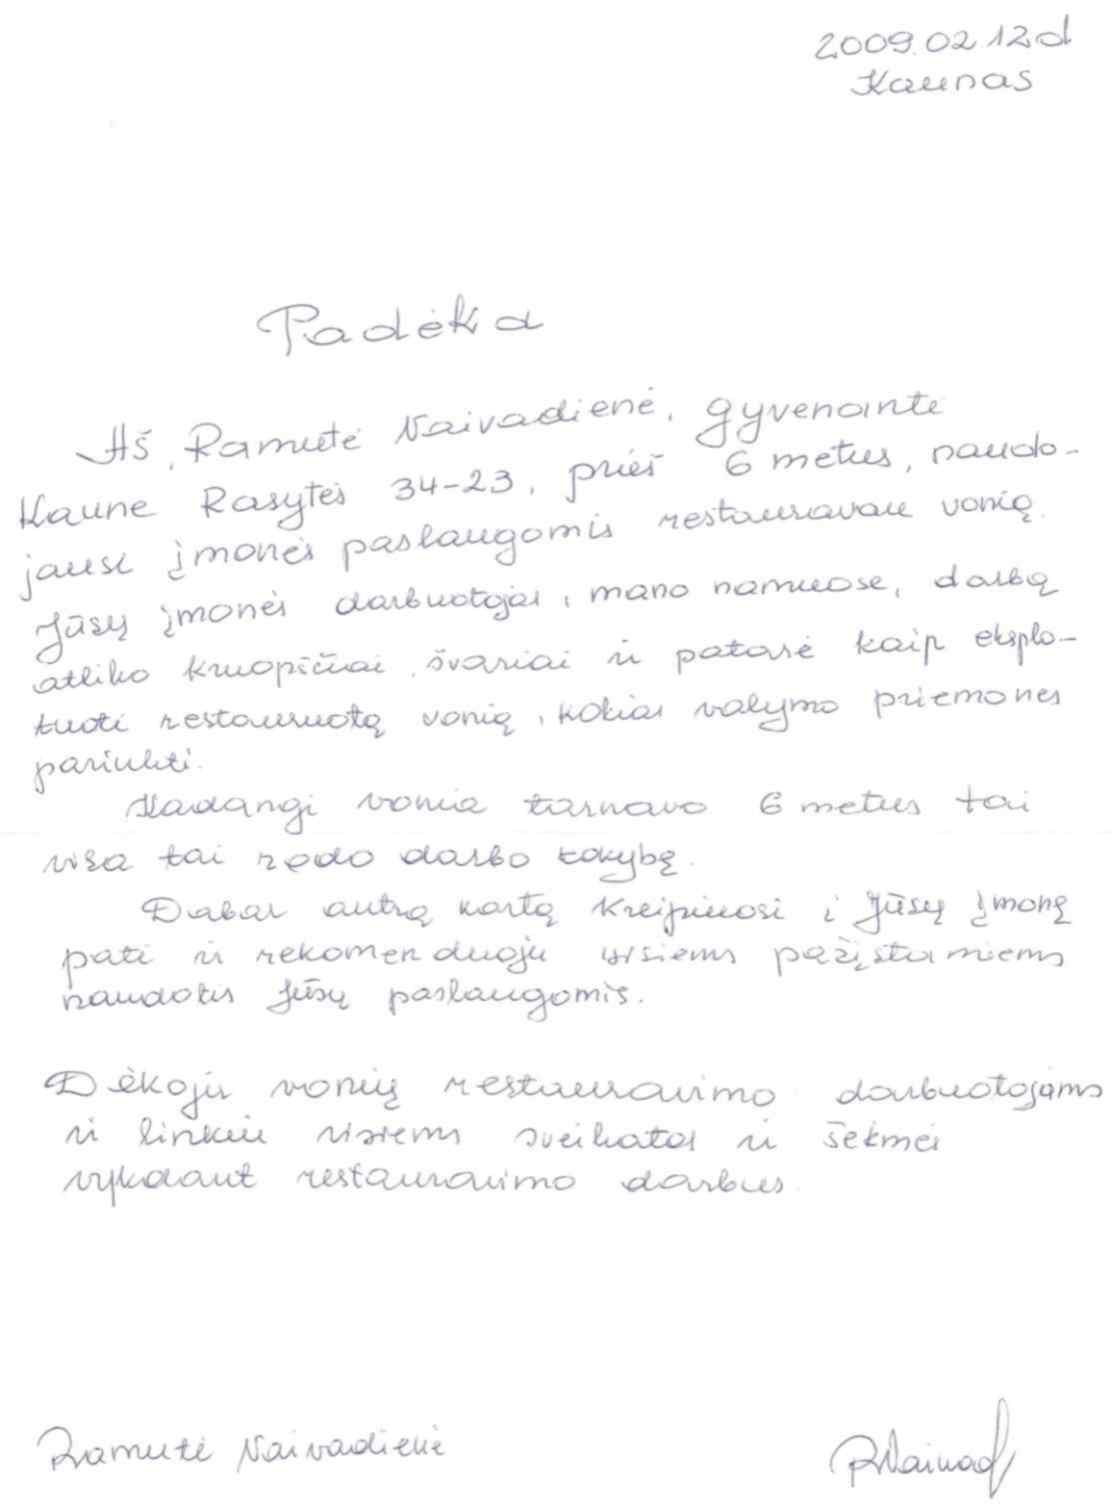 2009.02 12d
Kaunas
Padėka
Aš, Ramutė Naivadienė, gyvenanti
Kaune Rasytės 34-23, prieš 6 metus, naudo-
jausi įmonės paslaugomis restauravau vonią.
Jūsų įmonės darbuotojai, mano namuose, darbą
atliko kruopščiai, švariai ir patarė kaip eksplo-
tuoti restauruotą vonią, kokias valymo priemones
parinkti.
Kadangi vonia tarnavo 6 metus tai
visa tai rodo darbo kokybę.
Dabar antrą kartą kreipiuosi į Jūsų įmonę
pati ir rekomenduoju visiems pažįstamiems
naudotis Jūsų paslaugomis.
Dėkoju vonių restauravimo darbuotojams
ir linkiu visiems sveikatos ir sėkmės
vykdant restauravimo darbus.
Ramutė Naivadienė
RNaivad